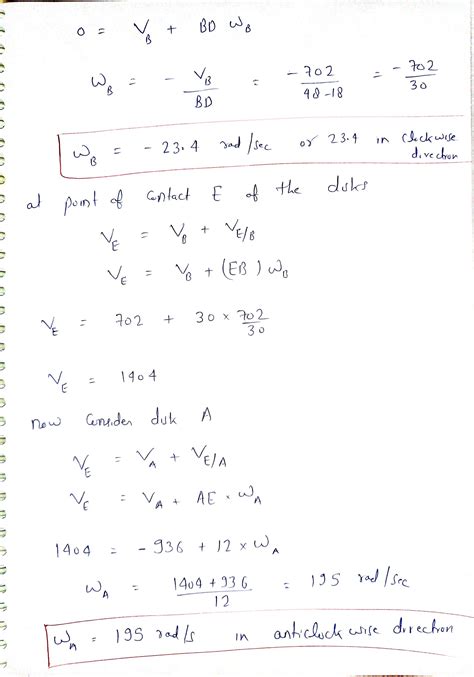 0 = V_B + BD ω_B
ω_B = - V_B / BD = -702 / 48-18 = -702 / 30
ω_B = - 23.4 rad/sec or 23.4 in Clockwise direction
at point of Contact E of the disks
V_E = V_B + V_E/B
V_E = V_B + (EB) ω_B
V_E = 702 + 30 × 702 / 30
V_E = 1404
now Consider disk A
V_E = V_A + V_E/A
V_E = V_A + AE × ω_A
1404 = - 936 + 12 × ω_A
ω_A = 1404 + 936 / 12 = 195 rad/sec
ω_A = 195 rad/s in anticlockwise direction